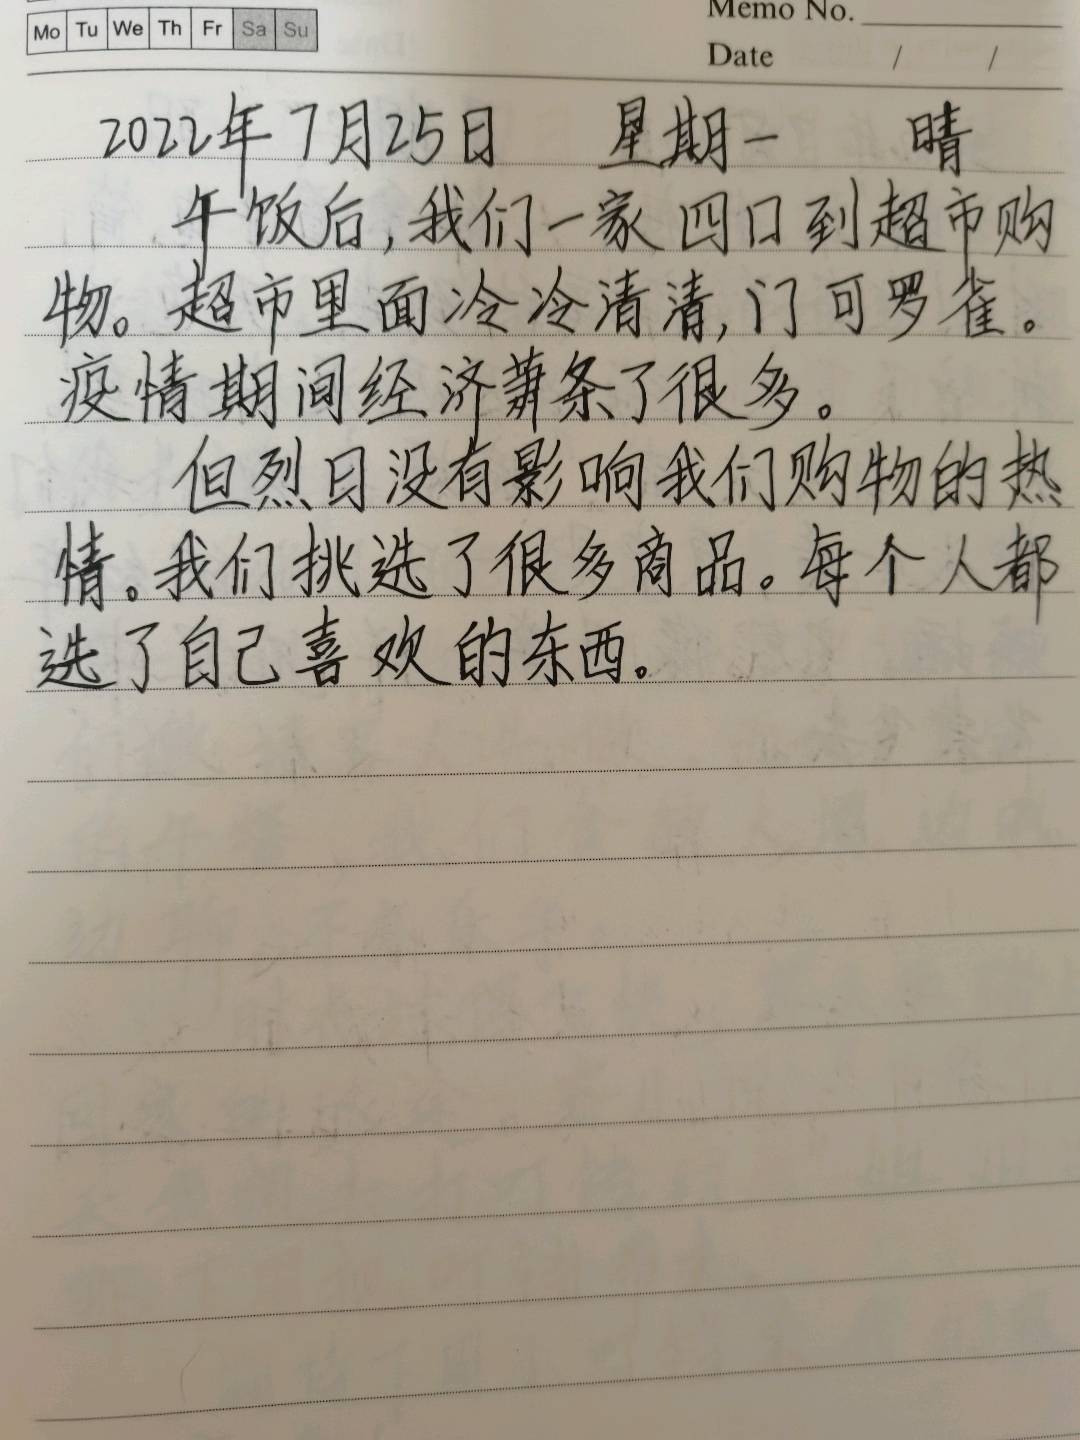 Mo Tu We Th Fr Sa Su
Memo No.
Date / /
2022年7月25日 星期一 晴
午饭后,我们一家四口到超市购
物。超市里面冷冷清清,门可罗雀。
疫情期间经济萧条了很多。
但烈日没有影响我们购物的热
情。我们挑选了很多商品。每个人都
选了自己喜欢的东西。